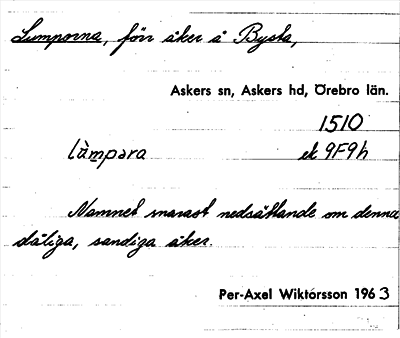 Lumporna, förr åker å Bysta,
Askers sn, Askers hd, Örebro län.
1510
lùmpəra ek 9F9h
Namnet snarast nedsättande om denna
dåliga, sandiga åker.
Per-Axel Wiktorsson 1963